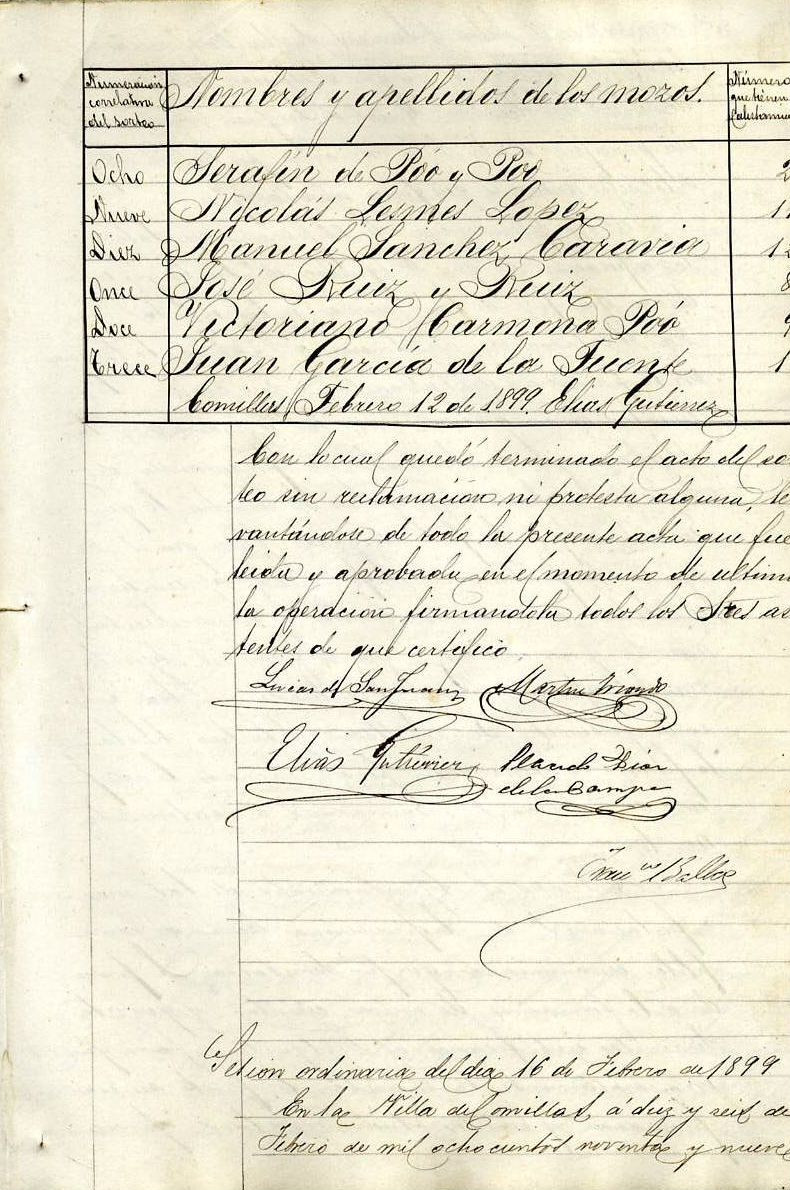 Numeración correlativa del sorteo Nombres y apellidos de los mozos. Número que tienen
Ocho Serafín de Póo y Poo 2
Nueve Nicolás Lesmes Lopez 11
Diez Manuel Sanchez Caravia 12
Once José Ruiz y Ruiz 8
Doce Victoriano Carmona Póo 9
Trece Juan García de la Fuente 1
Comillas Febrero 12 de 1899. Elías Gutiérrez
Con lo cual quedó terminado el acto del sor
teo sin reclamación ni protesta alguna, le
vantándose de todo la presente acta que fue
leida y aprobada en el momento de ultima
la operación firmandola todos los Sres as
tentes de que certifico
Lucas de San Juan Martin
Elías Gutiérrez
de la Campa
Sesion ordinaria del dia 16 de Febrero de 1899
En la Villa de Comillas á diez y seis de
Febrero de mil ochocientos noventa y nueve